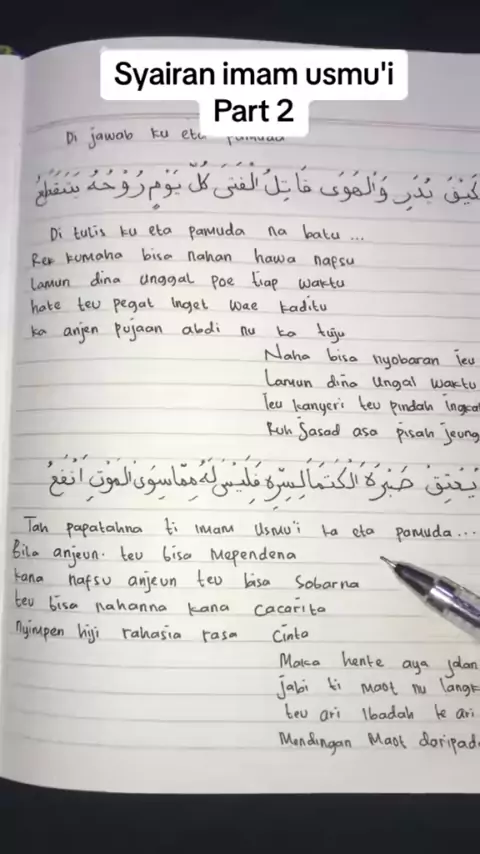 Syairan imam usmu'i
Part 2
Di jawab ku eta pamuda
كَيْفَ يُدَرِ وَالْهَوَى قَاتِلُ الْفَتَى كُلَّ يَوْمٍ رُوْحُهُ يَتَقَطَّعُ
Di tulis ku eta pamuda na batu ...
Rek kumaha bisa nahan hawa napsu
Lamun dina unggal poe tiap waktu
hate teu pegat inget wae kaditu
ka anjen pujaan abdi nu ka tuju
Naha bisa nyobaran ieu
Lamun dina Ungal waktu
Ieu kanyeri teu pindah ingkat
Ruh Jasad asa pisah jeung
Tah papatahna ti imam Usmu'i ka eta pamuda...
Bila anjeun teu bisa Mependena
kana nafsu anjeun teu bisa Sobarna
teu bisa nahanna kana cacarita
nyimpen hiji rahasia rasa cinta
Maka hente aya jalan
Jabi ti maot nu langk
teu ari Ibadah te ari
Mendingan Maot daripada